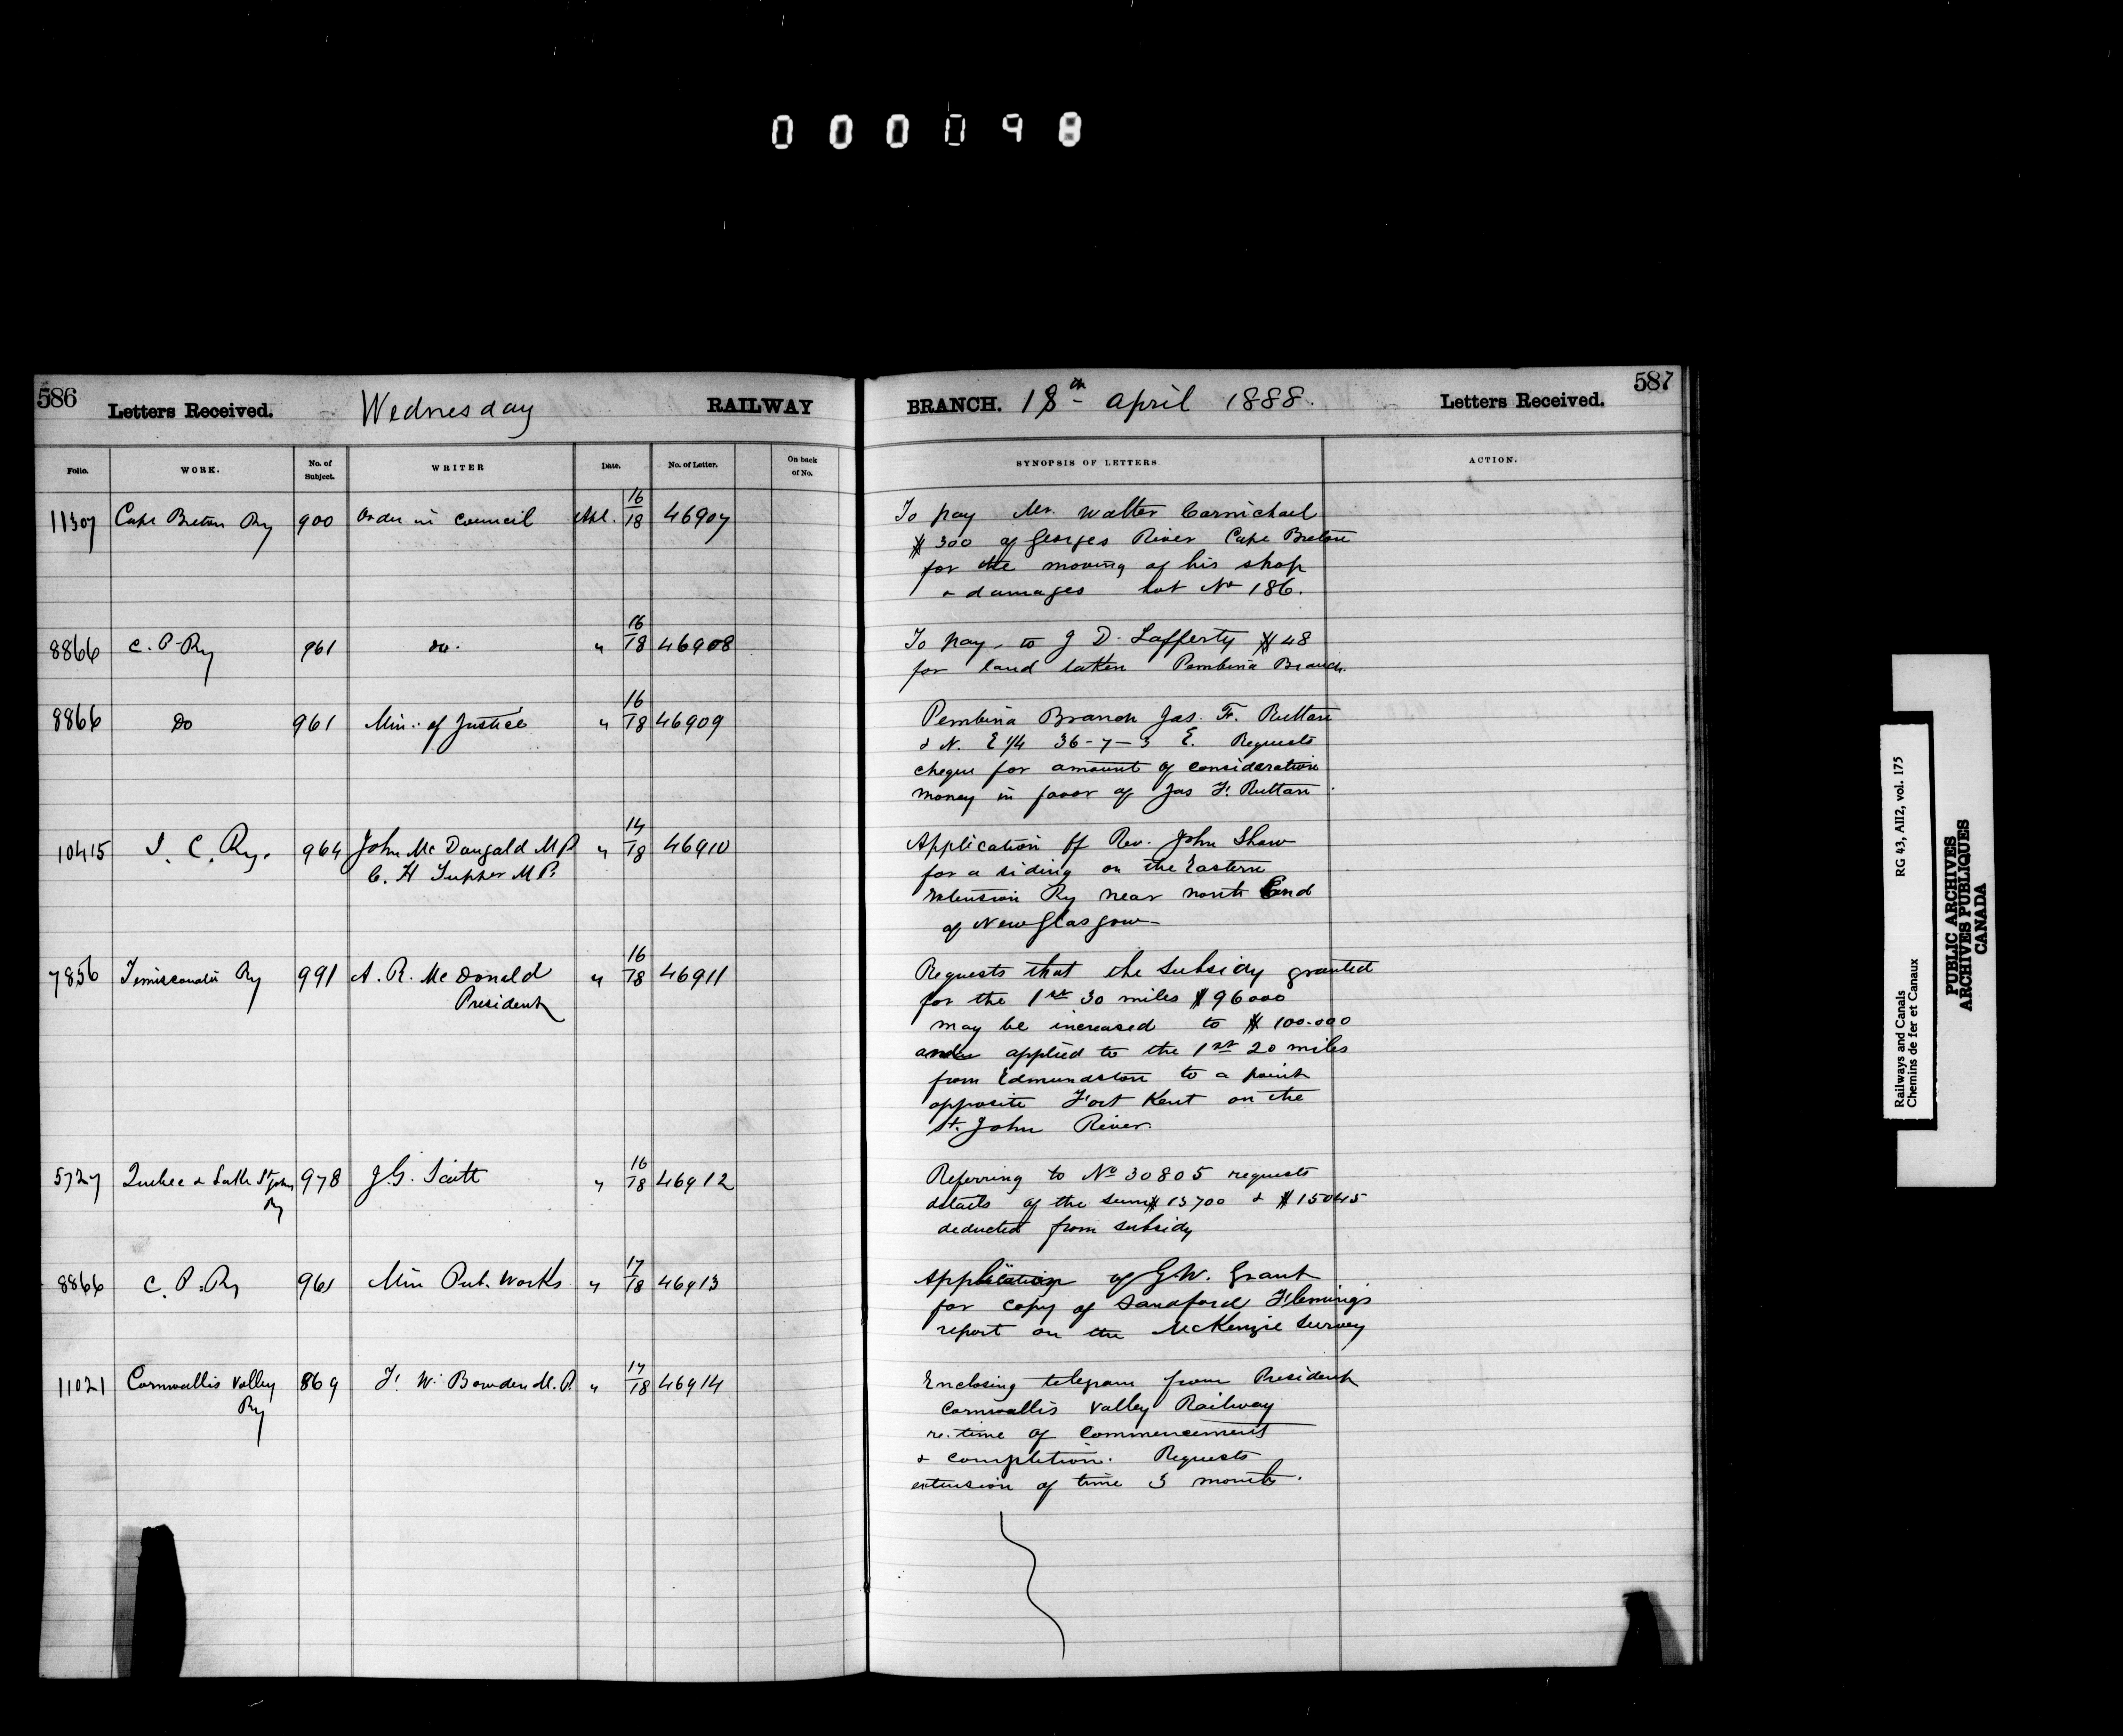 000098
586
Letters Received. Wednesday RAILWAY
BRANCH. 18th April 1888. Letters Received.
587
Folio. WORK. No. of Subject. WRITER Date. No. of Letter. On back of No. SYNOPSIS OF LETTERS. ACTION.
11307 Cape Breton Ry 900 Order in Council Apl. 16/18 46907
To pay Mr. Walter Carmichael
$300 of Georges River Cape Breton
for the moving of his shop
& damages Lot No 186.
8866 C. P. Ry 961 do. " 16/18 46908
To pay to J D. Lafferty $48
for land taken Pembina Branch.
8866 Do 961 Min. of Justice " 16/18 46909
Pembina Branch Jas. F. Ruttan
& N. E 1/4 36-7-3 E. Requests
cheque for amount of consideration
money in favor of Jas F. Ruttan.
10415 I. C. Ry. 964 John Mc Dougald M P. " 14/18 46910
C. H Tupper M P.
Application of Rev. John Shaw
for a siding on the Eastern
Extension Ry near north End
of New Glasgow
7856 Temiscouata Ry 991 A. R. Mc Donald " 16/18 46911
President
Requests that the Subsidy granted
for the 1st 30 miles $96000
may be increased to $100.000
and applied to the 1st 20 miles
from Edmundston to a point
opposite Fort Kent on the
St. John River.
5727 Quebec & Lake St John 978 J. G. Scott " 16/18 46912
Ry
Referring to No 30805 requests
details of the sums $13700 & $15045
deducted from subsidy
8866 C. P. Ry 961 Min Pub. Works " 17/18 46913
Application of G. W. Grant
for copy of Sandford Flemings
report on the McKenzie Survey
11021 Cornwallis Valley 869 F. W. Bowden M. P. " 17/18 46914
Ry
Enclosing telegram from President
Cornwallis Valley Railway
re. time of Commencement
& completion. Requests
extension of time 3 months.
RG 43, AII2, vol. 175
Railways and Canals
Chemins de fer et Canaux
PUBLIC ARCHIVES
ARCHIVES PUBLIQUES
CANADA